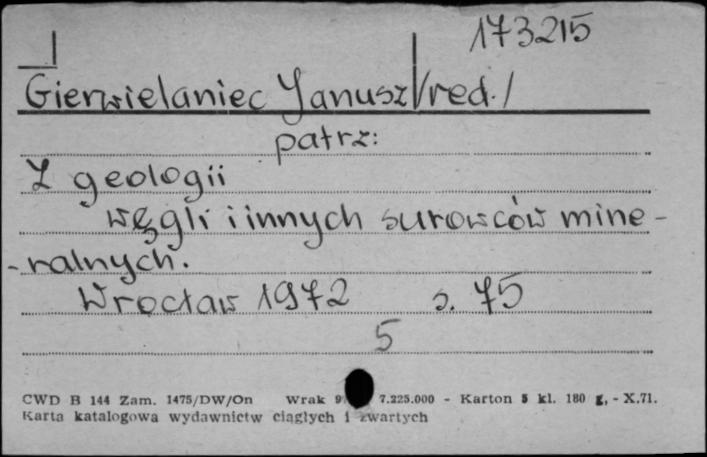 173215
Gierwielaniec Janusz /red./
patrz:
Z geologii
węgli i innych surowców mine-
-ralnych.
Wrocław 1972 s. 75
5
CWD B 144 Zam. 1475/DW/On Wrak 7.225.000 - Karton 5 kl. 180 g, - X.71.
Karta katalogowa wydawnictw ciągłych i zwartych